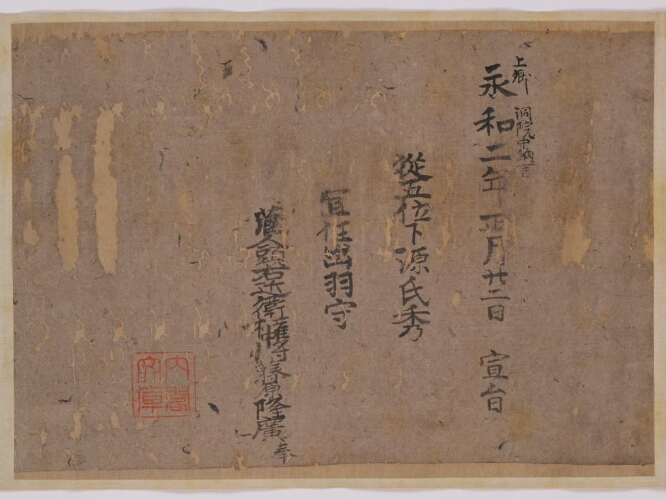 上卿 洞院中納言
永和二年正月廿二日 宣旨
從五位下源氏秀
宜任出羽守
蔵人頭右近衛權中將藤原隆廣奉